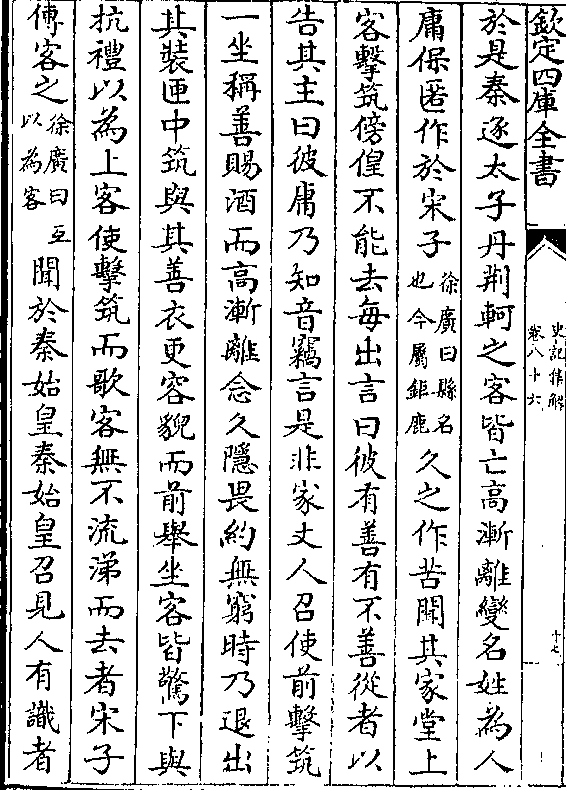 欽定四庫全書
史記集解
卷八十六
十七
於是秦逐太子丹荆軻之客皆亡高漸離變名姓為人
庸保匿作於宋子
徐廣曰縣名
也今屬鉅鹿
久之作苦聞其家堂上
客擊筑傍偟不能去每出言曰彼有善有不善從者以
告其主曰彼庸乃知音竊言是非家丈人召使前擊筑
一坐稱善賜酒而高漸離念久隱畏約無窮時乃退出
其裝匣中筑與其善衣更容貌而前舉坐客皆驚下與
抗禮以為上客使擊筑而歌客無不流涕而去者宋子
傳客之
徐廣曰互
以為客
聞於秦始皇秦始皇召見人有識者